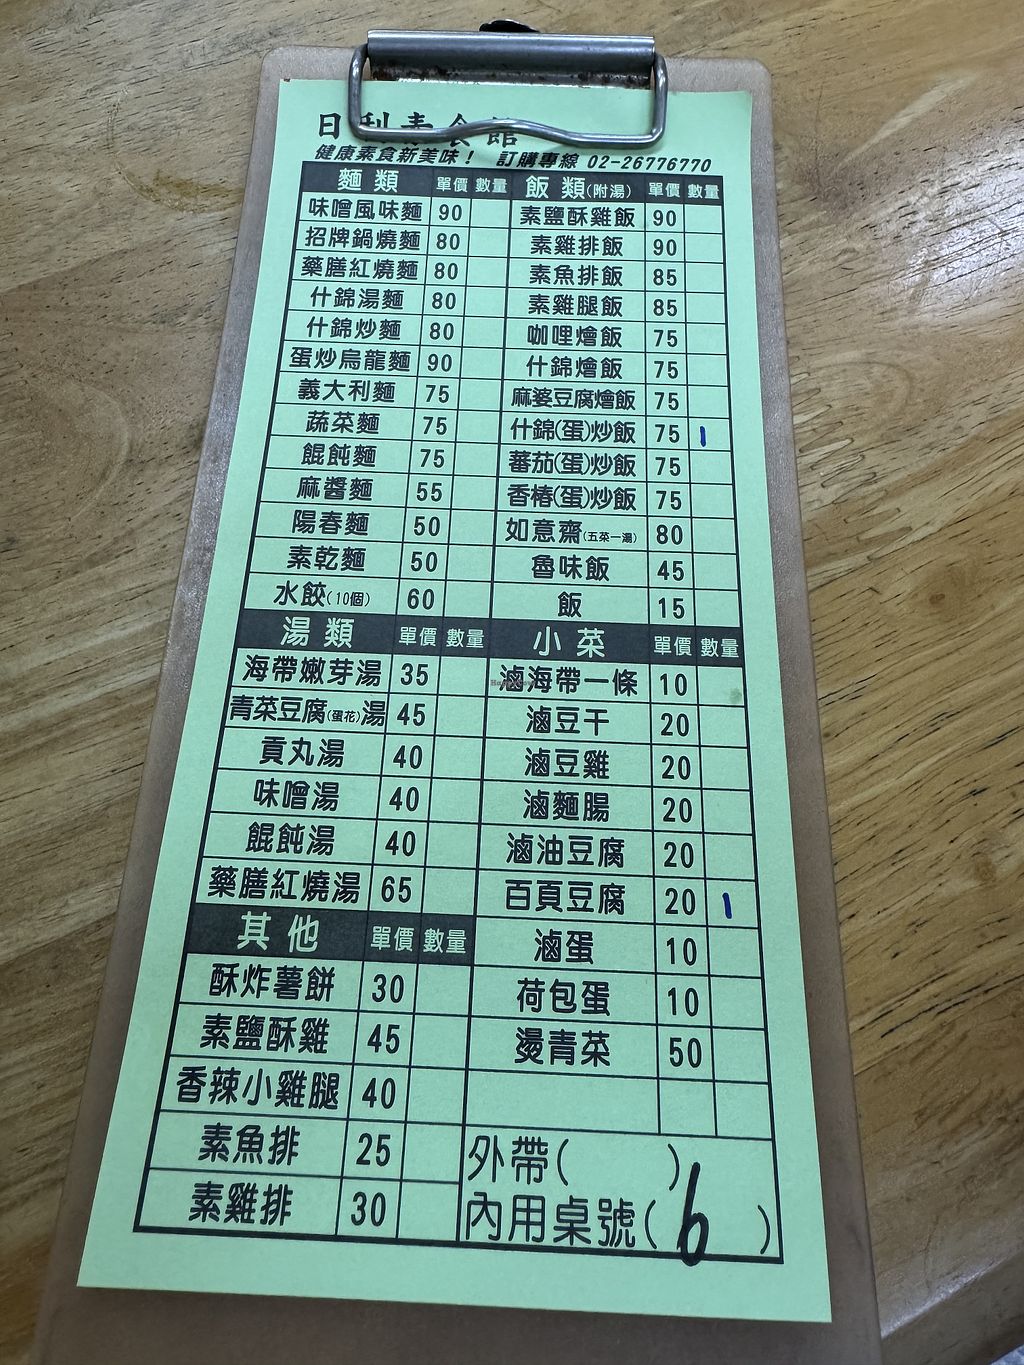 日利素食館
健康素食新美味! 訂購專線 02-26776770
麵類 單價 數量 飯類(附湯) 單價 數量
味噌風味麵 90 素鹽酥雞飯 90
招牌鍋燒麵 80 素雞排飯 90
藥膳紅燒麵 80 素魚排飯 85
什錦湯麵 80 素雞腿飯 85
什錦炒麵 80 咖哩燴飯 75
蛋炒烏龍麵 90 什錦燴飯 75
義大利麵 75 麻婆豆腐燴飯 75
蔬菜麵 75 什錦(蛋)炒飯 75 1
餛飩麵 75 蕃茄(蛋)炒飯 75
麻醬麵 55 香椿(蛋)炒飯 75
陽春麵 50 如意齋(五菜一湯) 80
素乾麵 50 魯味飯 45
水餃(10個) 60 飯 15
湯類 單價 數量 小菜 單價 數量
海帶嫩芽湯 35 滷海帶一條 10
青菜豆腐(蛋花)湯 45 滷豆干 20
貢丸湯 40 滷豆雞 20
味噌湯 40 滷麵腸 20
餛飩湯 40 滷油豆腐 20
藥膳紅燒湯 65 百頁豆腐 20 1
其他 單價 數量 滷蛋 10
酥炸薯餅 30 荷包蛋 10
素鹽酥雞 45 燙青菜 50
香辣小雞腿 40
素魚排 25 外帶( )
素雞排 30 內用桌號(6)